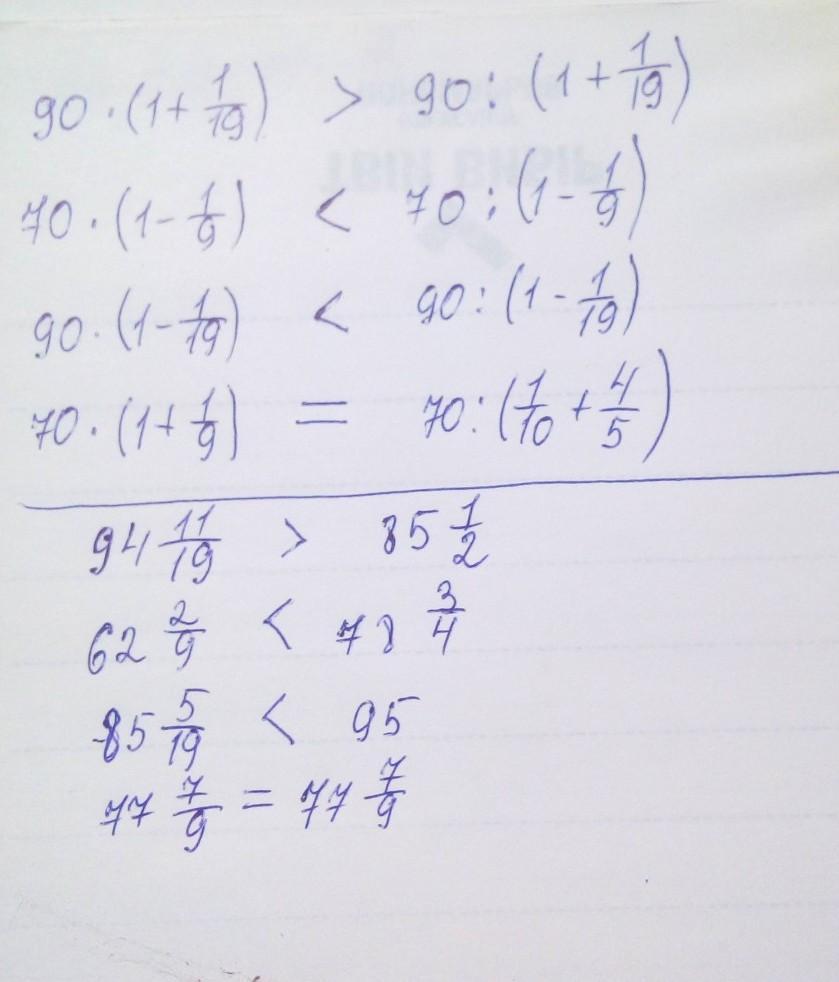 90 · (1 + 1/19) > 90 : (1 + 1/19)
70 · (1 - 1/9) < 70 : (1 - 1/9)
90 · (1 - 1/19) < 90 : (1 - 1/19)
70 · (1 + 1/9) = 70 : (1/10 + 4/5)
94 11/19 > 85 1/2
62 2/9 < 78 3/4
85 5/19 < 95
77 7/9 = 77 7/9